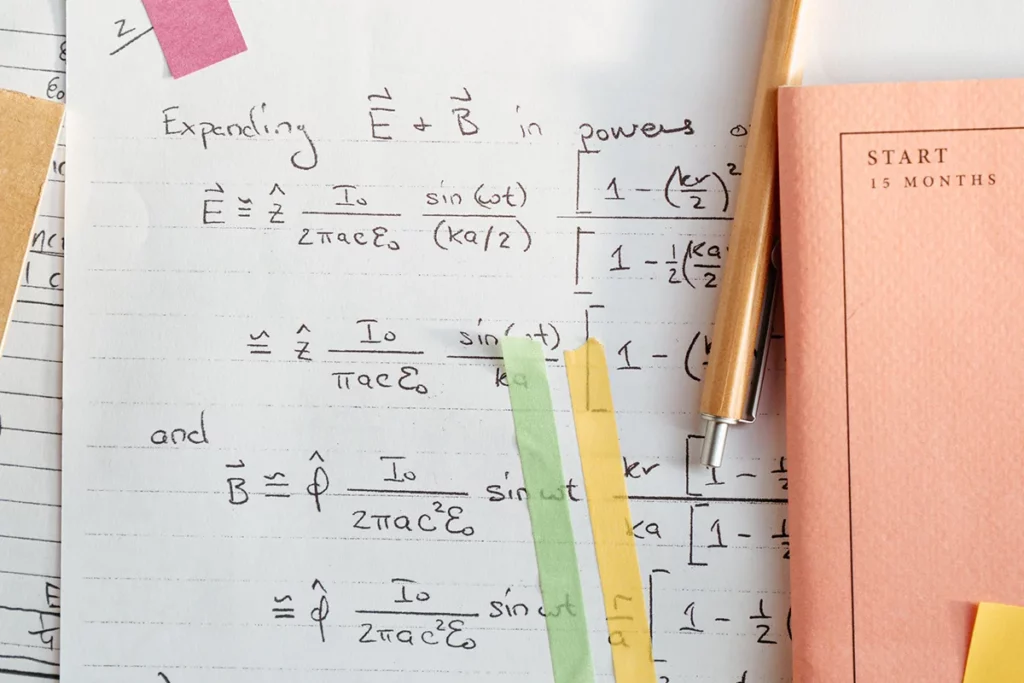 2
Expanding E⃗ + B⃗ in powers
E⃗ ≅ ẑ I₀/(2πacε₀) sin(ωt)/(ka/2) [1 - (kr/2)²] / [1 - ½(ka/2)
≅ ẑ I₀/(πacε₀) sin(ωt)/ka [1 - (
and
B⃗ ≅ φ̂ I₀/(2πac²ε₀) sin ωt kr[1 - ½ / ka[1 - ½
≅ φ̂ I₀/(2πac²ε₀) sin ωt r/a [1 - ½(
START
15 MONTHS